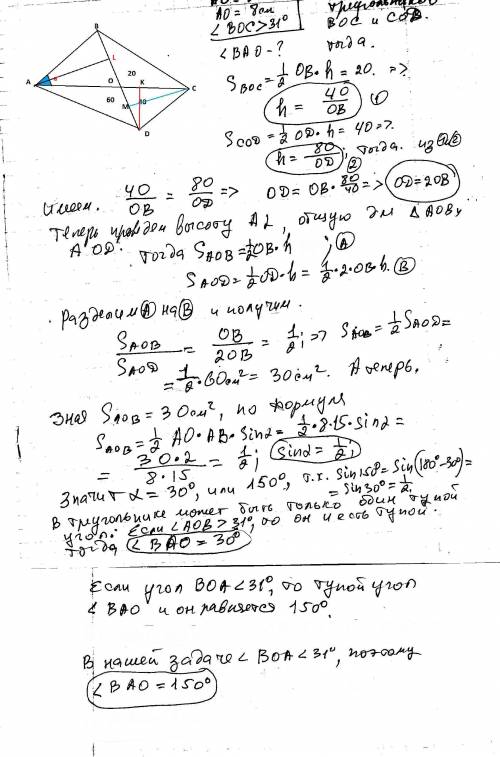 AO = 8см
<BOC > 31°
<BAO - ?
B
L
20
A
α
O
K
C
60
M
40
D
BOC и COD.
тогда.
S BOC = 1/2 OB · h = 20. =>
h = 40/OB ①
S COD = 1/2 OD · h = 40 =>
h = 80/OD ; тогда. из ①②
②
Имеем. 40/OB = 80/OD => OD = OB · 80/40 => OD = 2OB
Теперь проведем высоту AL, общую для △AOB и
AOD. Тогда S AOB = 1/2 OB · h ; Ⓐ
S AOD = 1/2 OD · h = 1/2 · 2 · OB · h. Ⓑ
Разделим Ⓐ на Ⓑ и получим.
S AOB / S AOD = OB / 2OB = 1/2; => S AOB = 1/2 S AOD =
= 1/2 · 60см² = 30см². А теперь,
Зная S AOB = 30см², по формуле
S AOB = 1/2 AO · AB · sinα = 1/2 · 8 · 15 · sinα =
= 30·2 / 8·15 = 1/2; sinα = 1/2;
Значит α = 30°, или 150°, т.к. sin150° = sin(180°-30°) =
= sin30° = 1/2.
В треугольнике может быть только один тупой
угол. Если <AOB > 31°, то он и есть тупой.
Тогда <BAO = 30°
Если угол BOA < 31°, то тупой угол
<BAO и он равняется 150°.
В нашей задаче <BOA < 31°, поэтому
<BAO = 150°